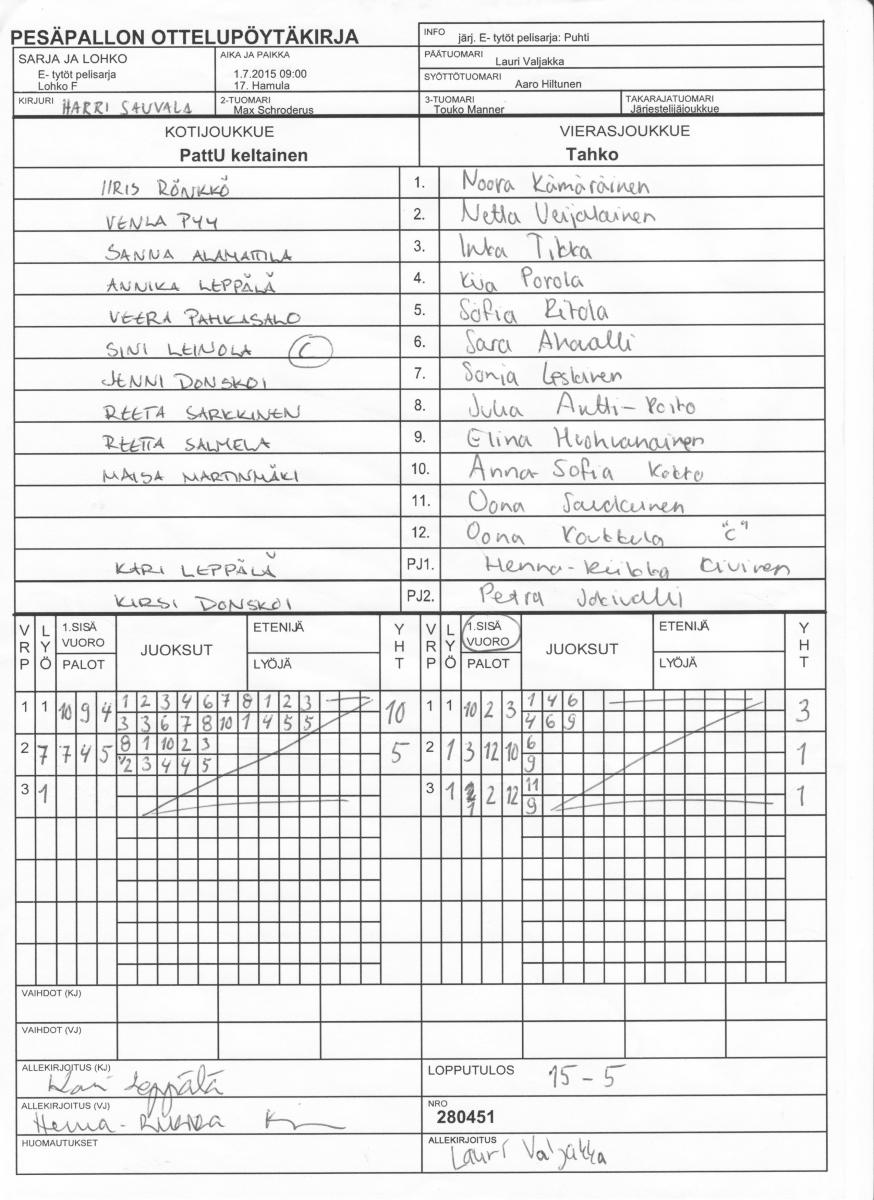 PESÄPALLON OTTELUPÖYTÄKIRJA
INFO järj. E- tytöt pelisarja: Puhti
SARJA JA LOHKO
E- tytöt pelisarja
Lohko F
AIKA JA PAIKKA
1.7.2015 09:00
17. Hamula
PÄÄTUOMARI
Lauri Valjakka
SYÖTTÖTUOMARI
Aaro Hiltunen
KIRJURI HARRI SAUVALA
2-TUOMARI
Max Schroderus
3-TUOMARI
Touko Manner
TAKARAJATUOMARI
Järjestelijäjoukkue
KOTIJOUKKUE
PattU keltainen
VIERASJOUKKUE
Tahko
IIRIS RÖNKKÖ 1. Noora Kämäräinen
VENLA PYY 2. Netta Veijalainen
SANNA ALAMATTILA 3. Inka Tikka
ANNIKA LEPPÄLÄ 4. Kiia Porola
VEERA PAHKASALO 5. Sofia Ritola
SINI LEINOLA C 6. Sara Ahavalli
JENNI DONSKOI 7. Sonja Leskinen
REETA SARKKINEN 8. Julia Antti-Poito
REETTA SALMELA 9. Elina Huohvanainen
MAISA MARTINMÄKI 10. Anna-Sofia Kotro
11. Oona
12. Oona "C"
KARI LEPPÄLÄ PJ1. Henna-Riikka Kivinen
KIRSI DONSKOI PJ2. Petra Jokivalli
VRP LYÖ 1.SISÄ VUORO PALOT JUOKSUT ETENIJÄ LYÖJÄ YHT VRP LYÖ 1.SISÄ VUORO PALOT JUOKSUT ETENIJÄ LYÖJÄ YHT
1 1 10 9 4 1 2 3 4 6 7 8 1 2 3 10 1 1 10 2 3 1 4 6 3
3 3 6 7 8 10 1 4 5 5 4 6 9
2 7 7 4 5 8 1 10 2 3 5 2 1 3 12 10 6 1
2 3 4 4 5 9
3 1 3 1 1 2 12 11 1
9
VAIHDOT (KJ)
VAIHDOT (VJ)
ALLEKIRJOITUS (KJ)
Kari Leppälä
LOPPUTULOS 15-5
ALLEKIRJOITUS (VJ)
Henna-Riikka
NRO
280451
HUOMAUTUKSET
ALLEKIRJOITUS
Lauri Valjakka